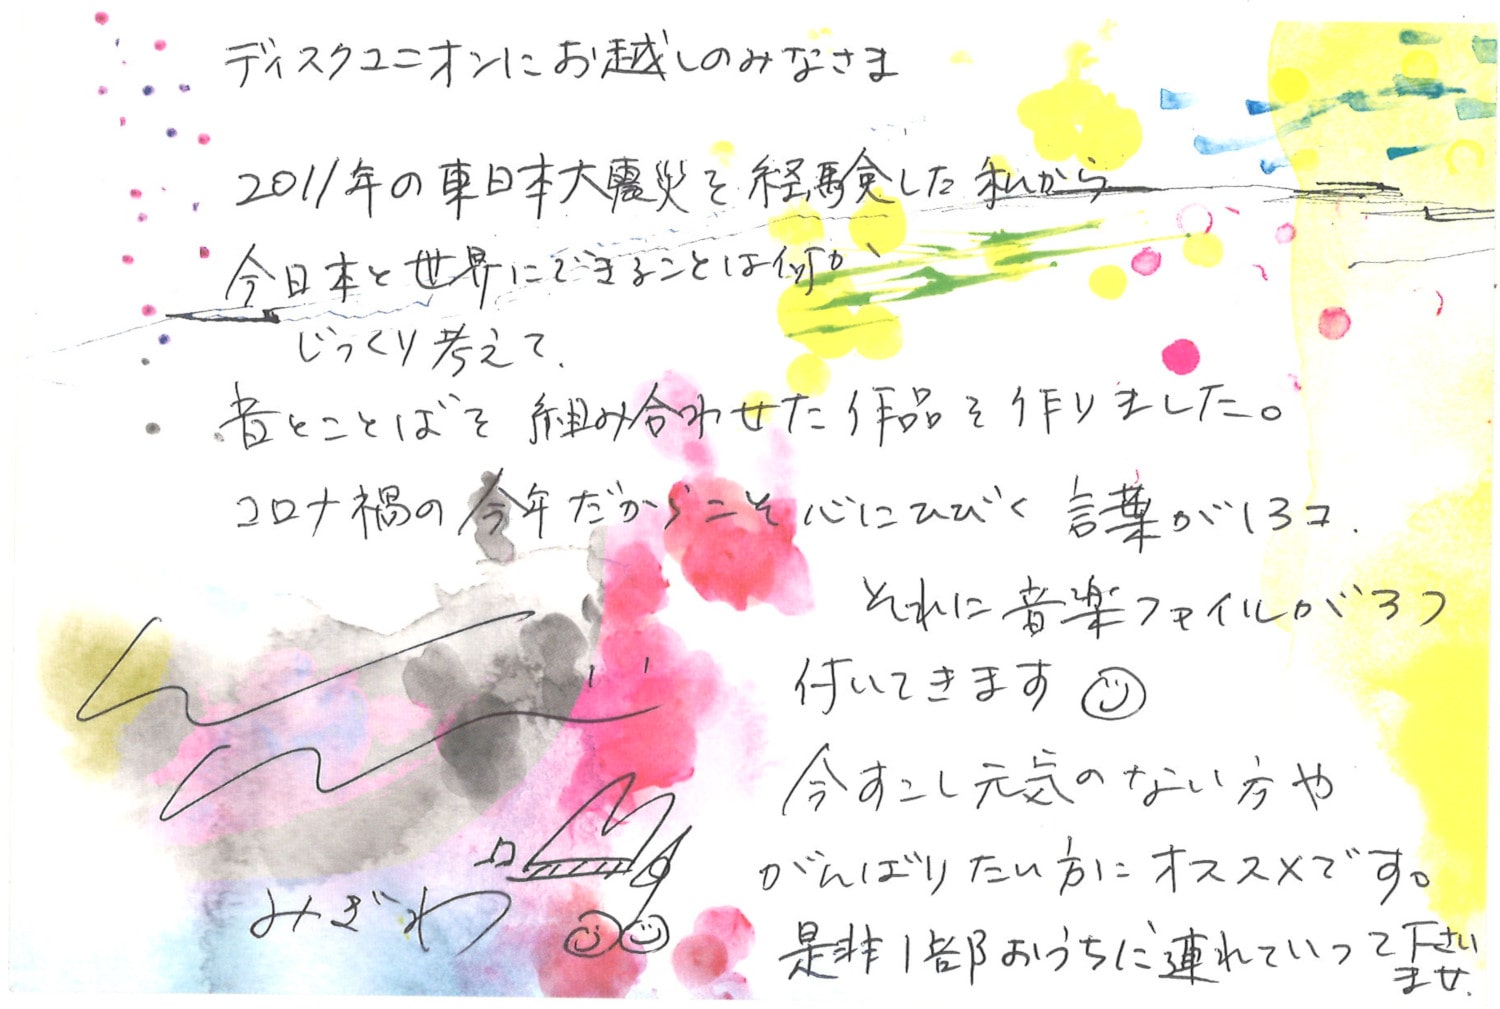 ディスクユニオンにお越しのみなさま
2011年の東日本大震災を経験した私から
今日本と世界にできることは何か、
じっくり考えて、
音とことばを組み合わせた作品を作りました。
コロナ禍の今年だからこそ心にひびく言葉が13コ、
それに音楽ファイルが3つ
付いてきます
今すこし元気のない方や
がんばりたい方にオススメです。
是非1部おうちに連れていって下さい
ませ.
みぎわ